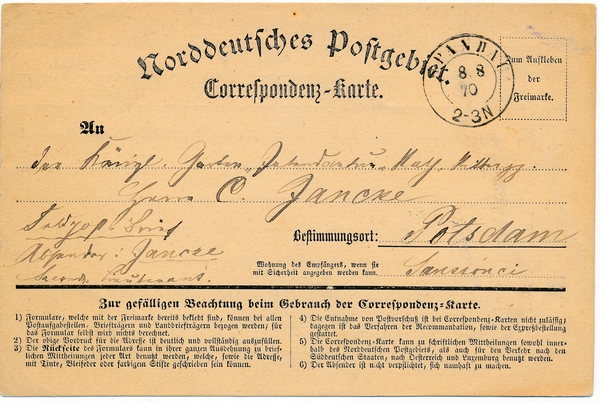 Norddeutsches Postgebiet.
Correspondenz-Karte.
SPANDAU
8 8
70
2-3N
Zum Aufkleben
der
Freimarke.
An
den Königl. Garten Intendantur Rath, Ritter pp.
Herrn C. Jancke
Feldpost-Brief
Bestimmungsort: Potsdam
Absender: Jancke
Seconde Lieutenant.
Wohnung des Empfängers, wenn sie
mit Sicherheit angegeben werden kann.
Sanssouci
Zur gefälligen Beachtung beim Gebrauch der Correspondenz-Karte.
1) Formulare, welche mit der Freimarke bereits beklebt sind, können bei allen
Postaufgabestellen, Briefträgern und Landbriefträgern bezogen werden; für
das Formular selbst wird nichts berechnet.
2) Der obige Vordruck für die Adresse ist deutlich und vollständig auszufüllen.
3) Die Rückseite des Formulars kann in ihrer ganzen Ausdehnung zu brief-
lichen Mittheilungen jeder Art benutzt werden, welche, sowie die Adresse,
mit Tinte, Bleifeder oder farbigem Stifte geschrieben sein können.
4) Die Entnahme von Postvorschuß ist bei Correspondenz-Karten nicht zulässig;
dagegen ist das Verfahren der Recommandation, sowie der Expreßbestellung
gestattet.
5) Die Correspondenz-Karte kann zu schriftlichen Mittheilungen sowohl inner-
halb des Norddeutschen Postgebiets, als auch für den Verkehr nach den
Süddeutschen Staaten, nach Oesterreich und Luxemburg benutzt werden.
6) Der Absender ist nicht verpflichtet, sich namhaft zu machen.